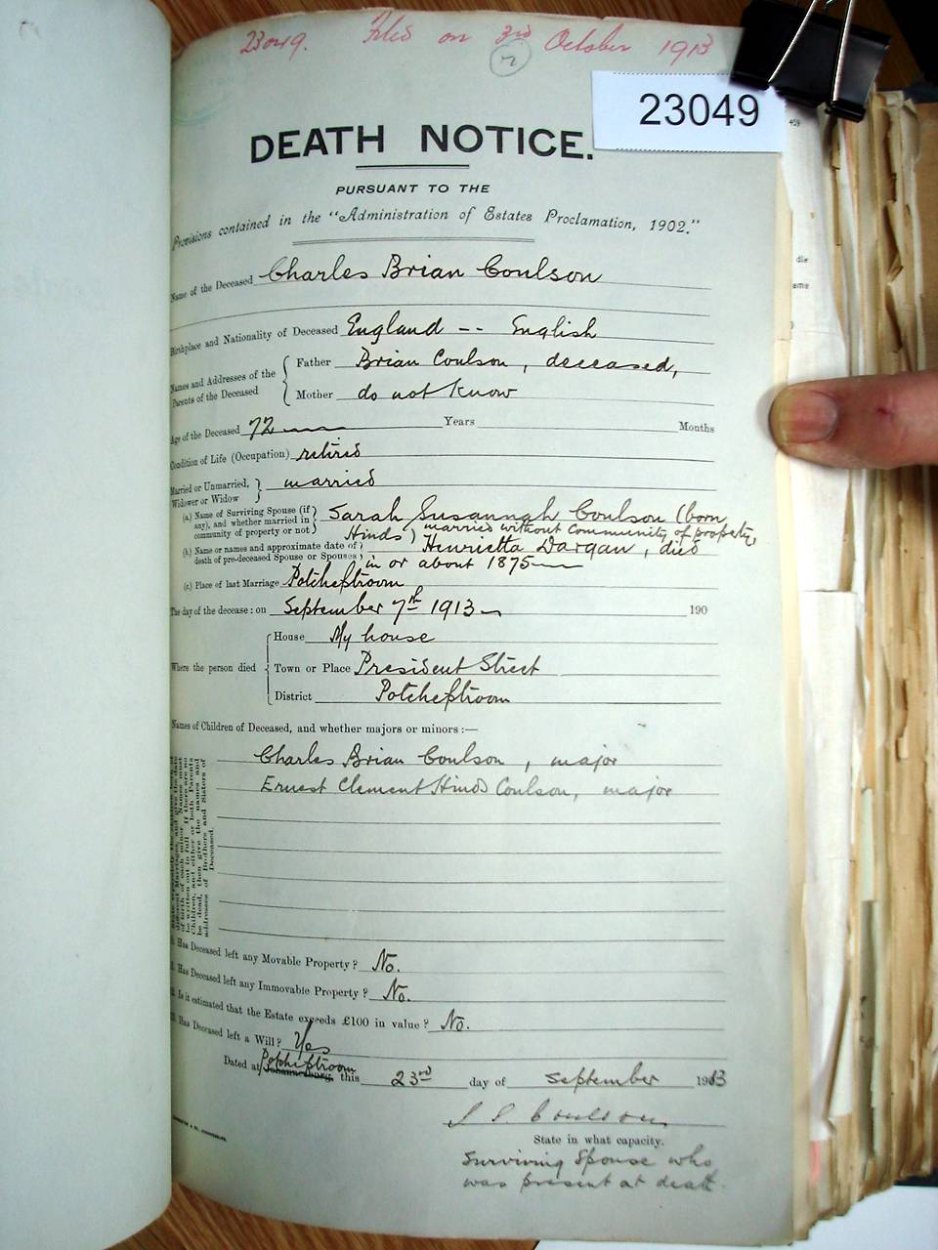 23049. Filed on 3rd October 1913
23049
DEATH NOTICE.
PURSUANT TO THE
Provisions contained in the "Administration of Estates Proclamation, 1902."
Name of the Deceased Charles Brian Coulson
Birthplace and Nationality of Deceased England -- English
Names and Addresses of the Parents of the Deceased { Father Brian Coulson, deceased,
Mother do not know
Age of the Deceased 72 Years Months
Condition of Life (Occupation) retired
Married or Unmarried, Widower or Widow } married
(a.) Name of Surviving Spouse (if any), and whether married in community of property or not } Sarah Susannah Coulson (born
Hinds) married without Community of property,
(b.) Name or names and approximate date of death of pre-deceased Spouse or Spouses } Henrietta Dargan, died
in or about 1875
(c.) Place of last Marriage Potchefstroom
The day of the decease: on September 7th 1913 190
Where the person died { House My house
Town or Place President Street
District Potchefstroom
Names of Children of Deceased, and whether majors or minors:—
Charles Brian Coulson, major
Ernest Clement Hinds Coulson, major
be dead, then give the names and
addresses of Brothers and Sisters of
Deceased.
Has Deceased left any Movable Property? No.
Has Deceased left any Immovable Property? No.
Is it estimated that the Estate exceeds £100 in value? No.
Has Deceased left a Will? Yes
Potchefstroom
Dated at Johannesburg this 23rd day of September 1913
S. S. Coulson
State in what capacity.
Surviving Spouse who
was present at death.